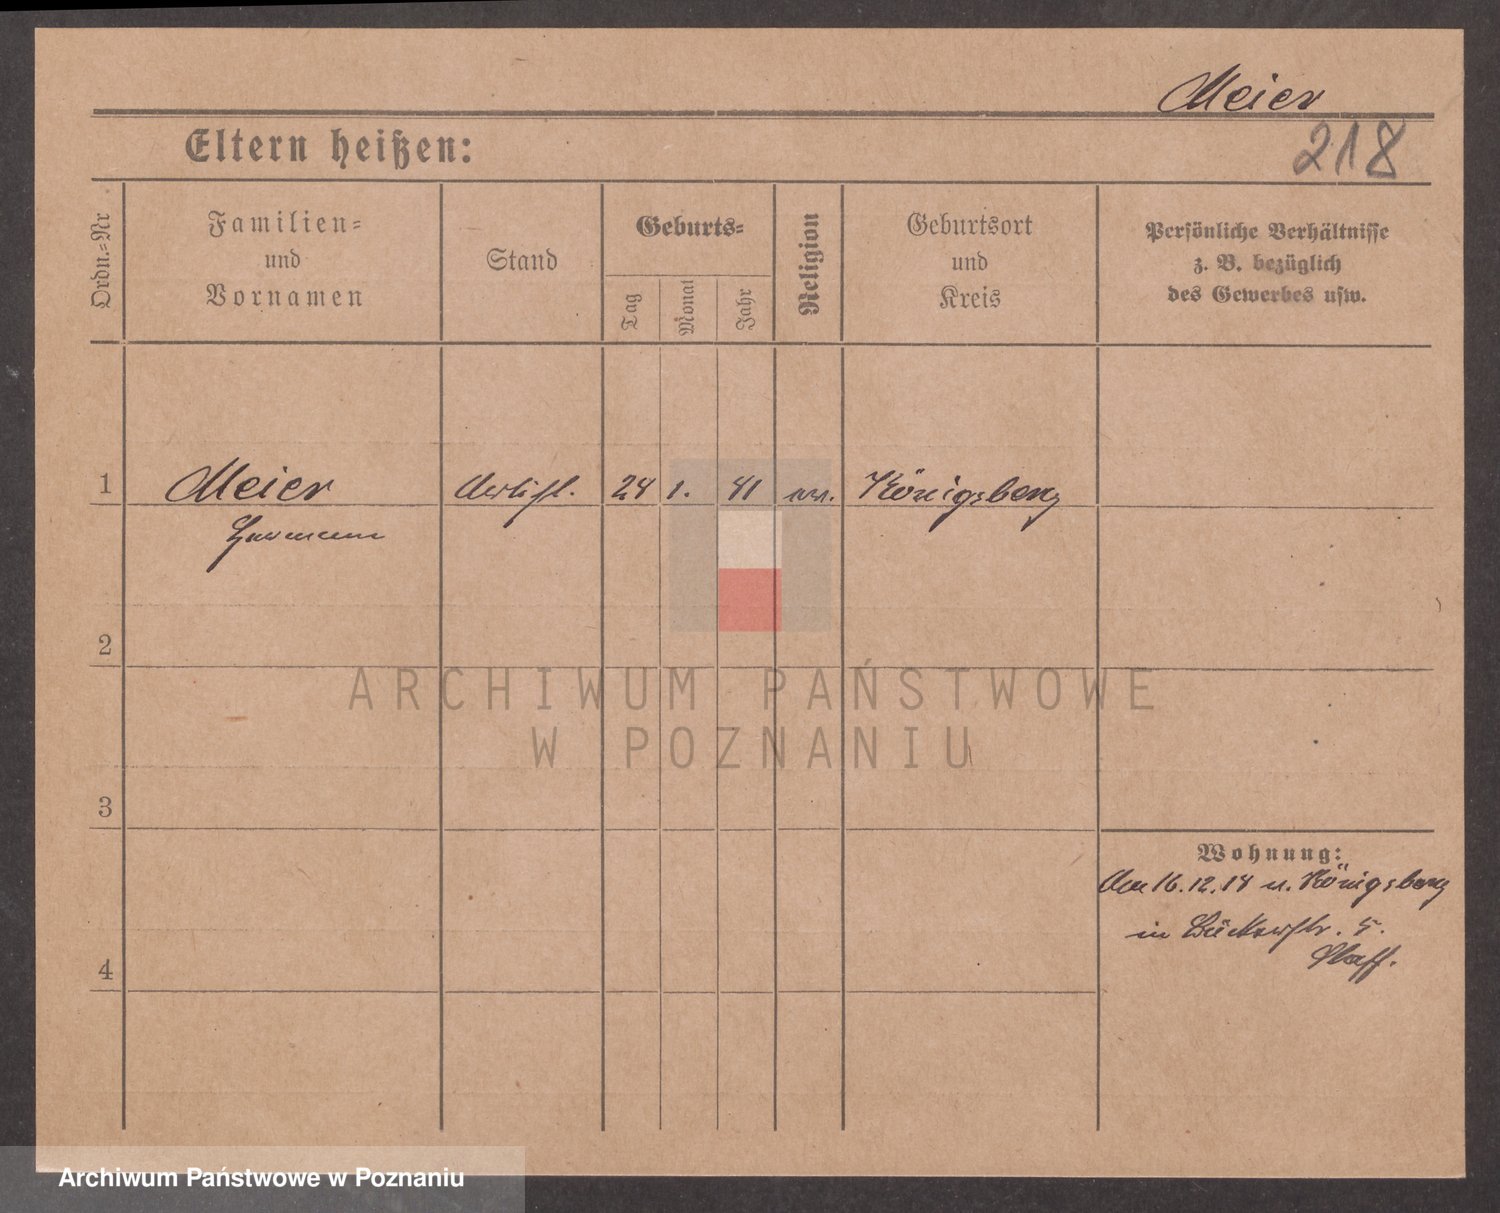 Meier
218
Eltern heißen:
Ordn.=Nr
Familien=
und
Vornamen
Stand
Geburts=
Tag
Monat
Jahr
Religion
Geburtsort
und
Kreis
Persönliche Verhältnisse
z. B. bezüglich
des Gewerbes usw.
1 Meier 24 1. 81 Königsberg
Hermann
2
3
4
Wohnung:
Am 16.12.14 v. Königsberg
in Bäckerstr. 5.
ARCHIWUM PAŃSTWOWE
W POZNANIU
Archiwum Państwowe w Poznaniu